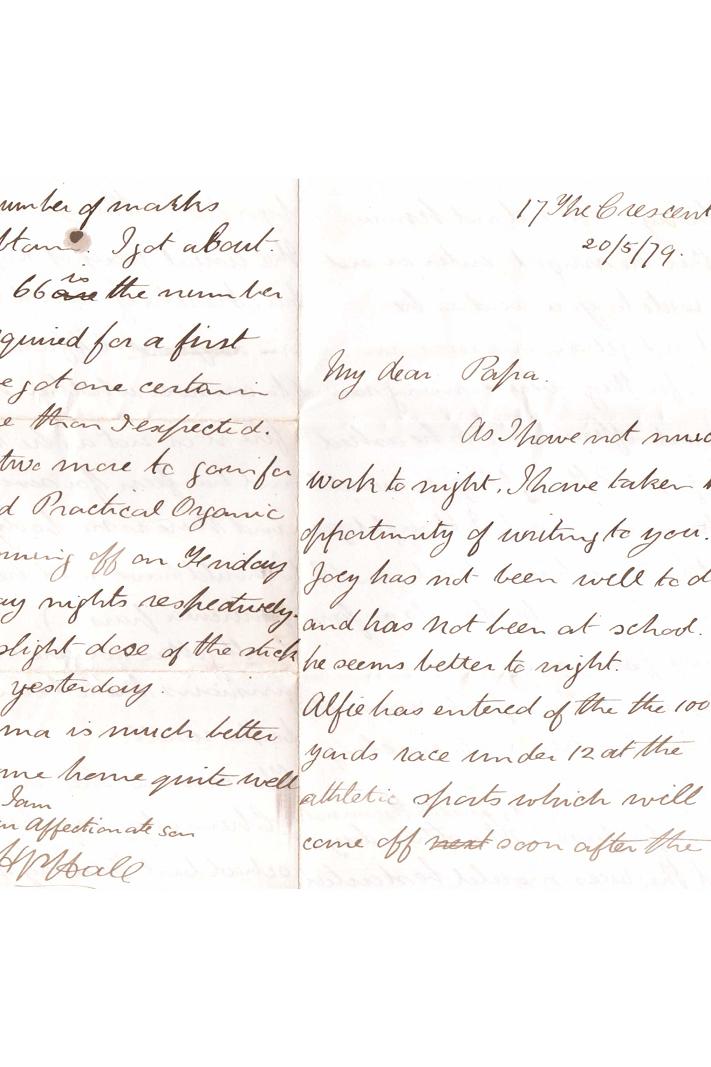 17 The Crescent
20/5/79.
My dear Papa.
As I have not muc
work to night, I have taken
opportunity of writing to you.
Joey has not been well to d
and has not been at school.
he seems better to night.
Alfie has entered of the the 100
yards race under 12 at the
athletic sports which will
come off next soon after the
umber of marks
I got about.
66 are is the number
quired for a first
e got one certain
e than I expected.
two more to go in for
d Practical Organic
ming off on
ay nights respectively.
slight dose of the stick
yesterday.
ma is much better
me home quite well
I am
Affectionate son
Hall